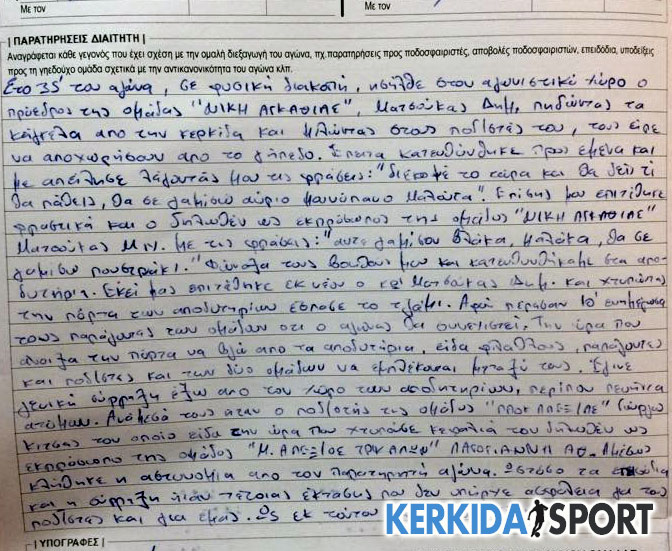 Με τον
Με τον
ΠΑΡΑΤΗΡΗΣΕΙΣ ΔΙΑΙΤΗΤΗ
Αναγράφεται κάθε γεγονός που έχει σχέση με την ομαλή διεξαγωγή του αγώνα, πχ.παρατηρήσεις προς ποδοσφαιριστές, αποβολές ποδοσφαιριστών, επεισόδια, υποδείξεις
προς τη γηπεδούχο ομάδα σχετικά με την αντικανονικότητα του αγώνα κλπ.
Στο 35' του αγώνα, σε φυσική διακοπή, εισήλθε στον αγωνιστικό χώρο ο
πρόεδρος της ομάδας "ΝΙΚΗ ΑΓΚΑΘΙΑΣ", Ματσούκας Δημ. πηδώντας τα
κάγκελα από την κερκίδα και μιλώντας στους ποδ/στές του, τους είπε
να αποχωρήσουν από το γήπεδο. Έπειτα κατευθύνθηκε προς εμένα και
με απείλησε λέγοντάς μου τις φράσεις: "διέκοψέ το τώρα και θα δεις τι
θα πάθεις, θα σε γαμίσω αύριο μουνόπανο μαλάκα". Επίσης μου επιτέθηκε
φραστικά και ο δηλωθέν ως εκπρόσωπος της ομάδας "ΝΙΚΗ ΑΓΚΑΘΙΑΣ"
Ματσούκας Μιν. με τις φράσεις: "αντε γαμίσου βλάκα, μαλάκα, θα σε
γαμίσω πουστράκι." Φώναξα τους βοηθούς μου και κατευθυνθήκαμε στα απο-
δυτήρια. Εκεί μας επιτέθηκε εκ νέου ο κος Ματσούκας Δημ. και χτυπώντας
την πόρτα των αποδυτηρίων έσπασε το τζάμι. Αφού πέρασαν 10' ενημέρωσα
τους παράγοντες των ομάδων ότι ο αγώνας θα συνεχιστεί. Την ώρα που
άνοιξα την πόρτα να βγω από τα αποδυτήρια, είδα φιλάθλους, παράγοντες
και ποδ/στές και των δύο ομάδων να εμπλέκονται μεταξύ τους. Έγινε
γενική σύρραξη έξω από τον χώρο των αποδυτηρίων, περίπου πενήντα
ατόμων. Ανάμεσά τους ήταν ο ποδ/στής της ομάδας Γιώργος
Κίτσας τον οποίο είδα την ώρα που χτυπούσε κεφαλιά τον δηλωθέν ως
εκπρόσωπο της ομάδας "Μ. ΑΛΕΞΙΟΣ ΤΡΙΚΑΛΩΝ" ΛΑΓΟΓΙΑΝΝΗ ΑΘ. Αμέσως
κλήθηκε η αστυνομία από τον παρατηρητή αγώνα. Ωστόσο τα επεισόδια
και η σύρραξη ήταν τέτοιας έκτασης που δεν υπήρχε ασφάλεια για τους
ποδ/στές και για εμάς. Ως εκ τούτου
KERKIDA SPORT
ΥΠΟΓΡΑΦΕΣ